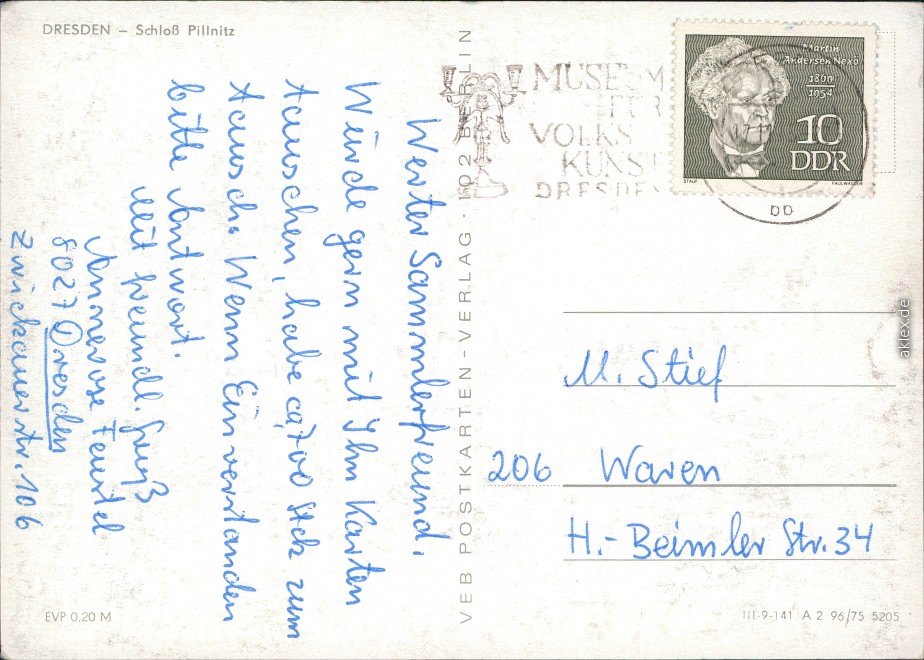 DRESDEN – Schloß Pillnitz
Werter Sammlerfreund.
Würde gern mit Ihn Karten
tauschen, habe ca 700 Stck zum
tausch. Wenn Einverstanden
bitte Antwort.
mit freundl. Gruß
Annerose Feustel
8027 Dresden
Zwickauerstr. 106
EVP 0,20 M
VEB POSTKARTEN-VERLAG · 102 BERLIN
MUSEUM
FÜR
VOLKS
KUNST
DRESDEN
Martin
Andersen Nexö
1869
1954
10
DDR
STAUF
PAUL WAGLER
M. Stief
206 Waren
H.-Beimler Str. 34
III-9-141 A 2 96/75 5205
aklex.de